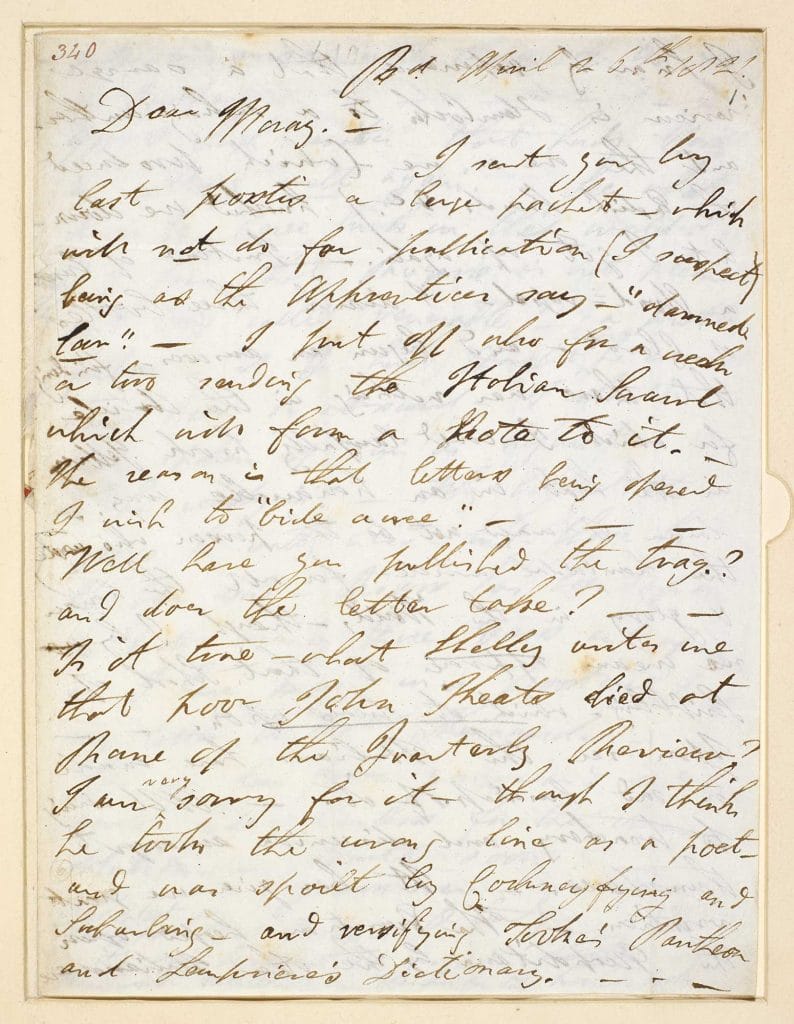 340
Rd. April 26th 1821
Dear Moray. —
I sent you by
last postis a large packet — which
will not do for publication (I suspect)
being as the Apprentices say — "damned
low". — I put off also for a week
or two sending the Italian Scrawl
which will form a Note to it. —
The reason is that letters being opened
I wish to "bide a wee". — — —
Well have you published the trag.?
and does the letter take? — —
Is it true — what Shelley writes me
that poor John Keats died at
Rome of the Quarterly Review?
I am very sorry for it — though I think
he took the wrong line as a poet —
and was spoilt by Cockneyfying and
Suburbing — and versifying Tooke's Pantheon
and Lempriere's Dictionary. — - — -